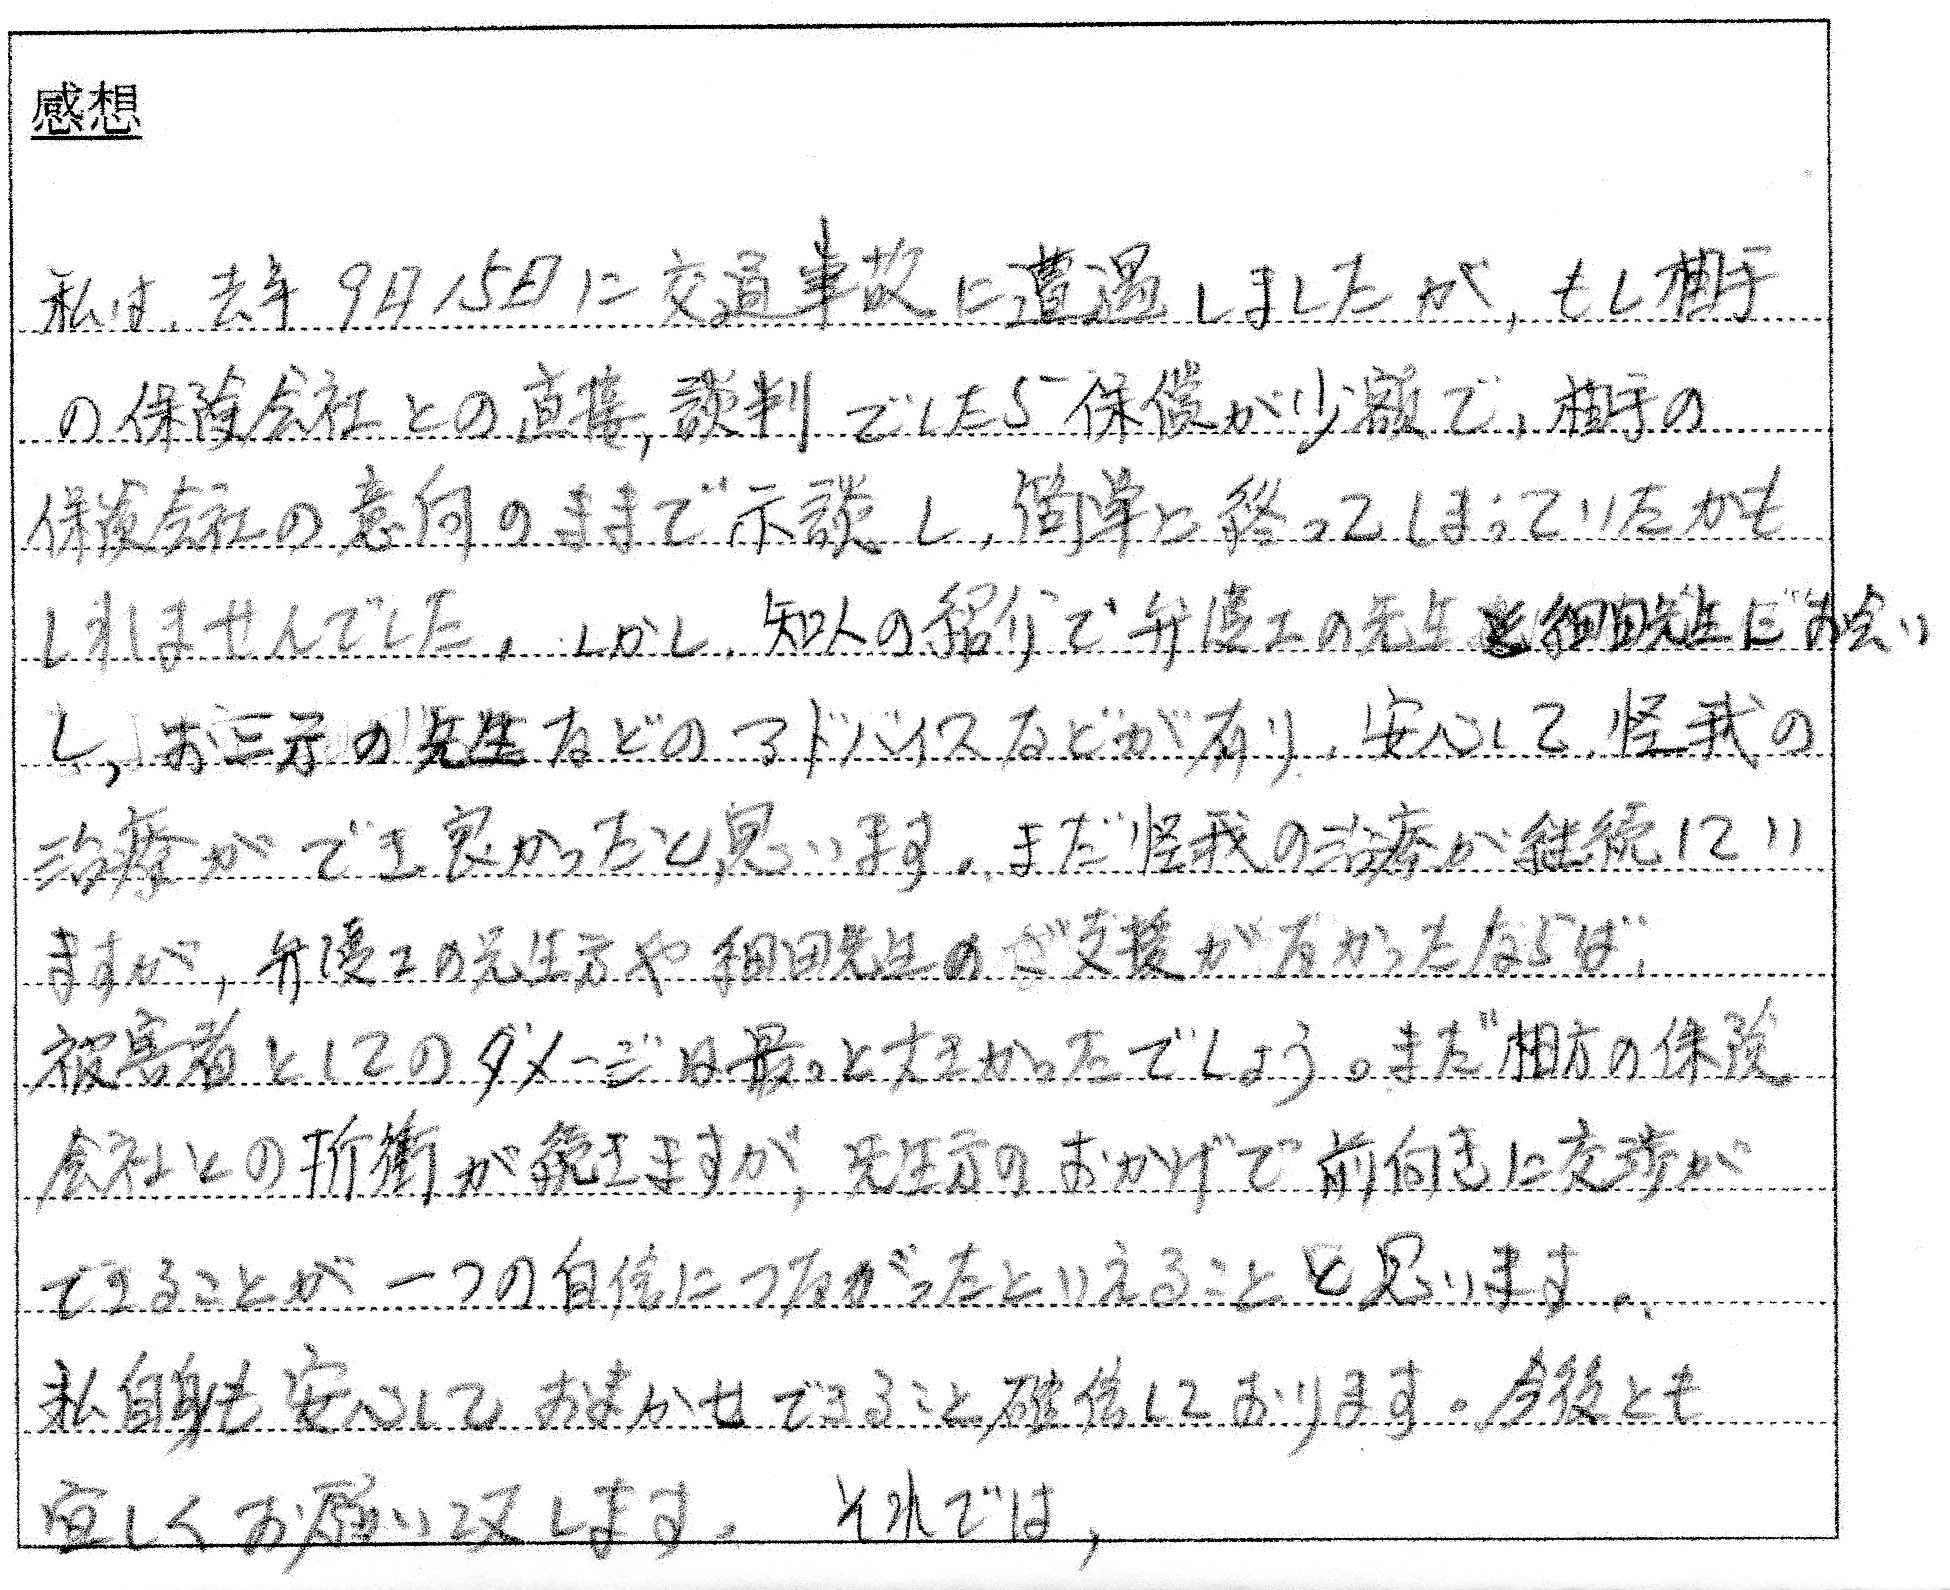 感想
私は、去年9月15日に交通事故に遭遇しましたが、もし相手
の保険会社との直接、談判でしたら保償が少額で、相手の
保険会社の意向のままで示談し、簡単に終ってしまっていたかも
しれませんでした。しかし、知人の紹介で弁護士の先生と細田先生にお会い
し、お三方の先生などのアドバイスなどが有り、安心して怪我の
治療ができ良かったと思います。まだ怪我の治療が継続してい
ますが、弁護士の先生方や細田先生のご支援がなかったならば、
被害者としてのダメージは最っと大きかったでしょう。まだ相方の保険
会社との折衝が続きますが、先生方のおかげで前向きに交渉が
できることが一つの自信につながったといえることと思います。
私自身も安心しておまかせできること確信しております。今後とも
宜しくお願い致します。それでは、